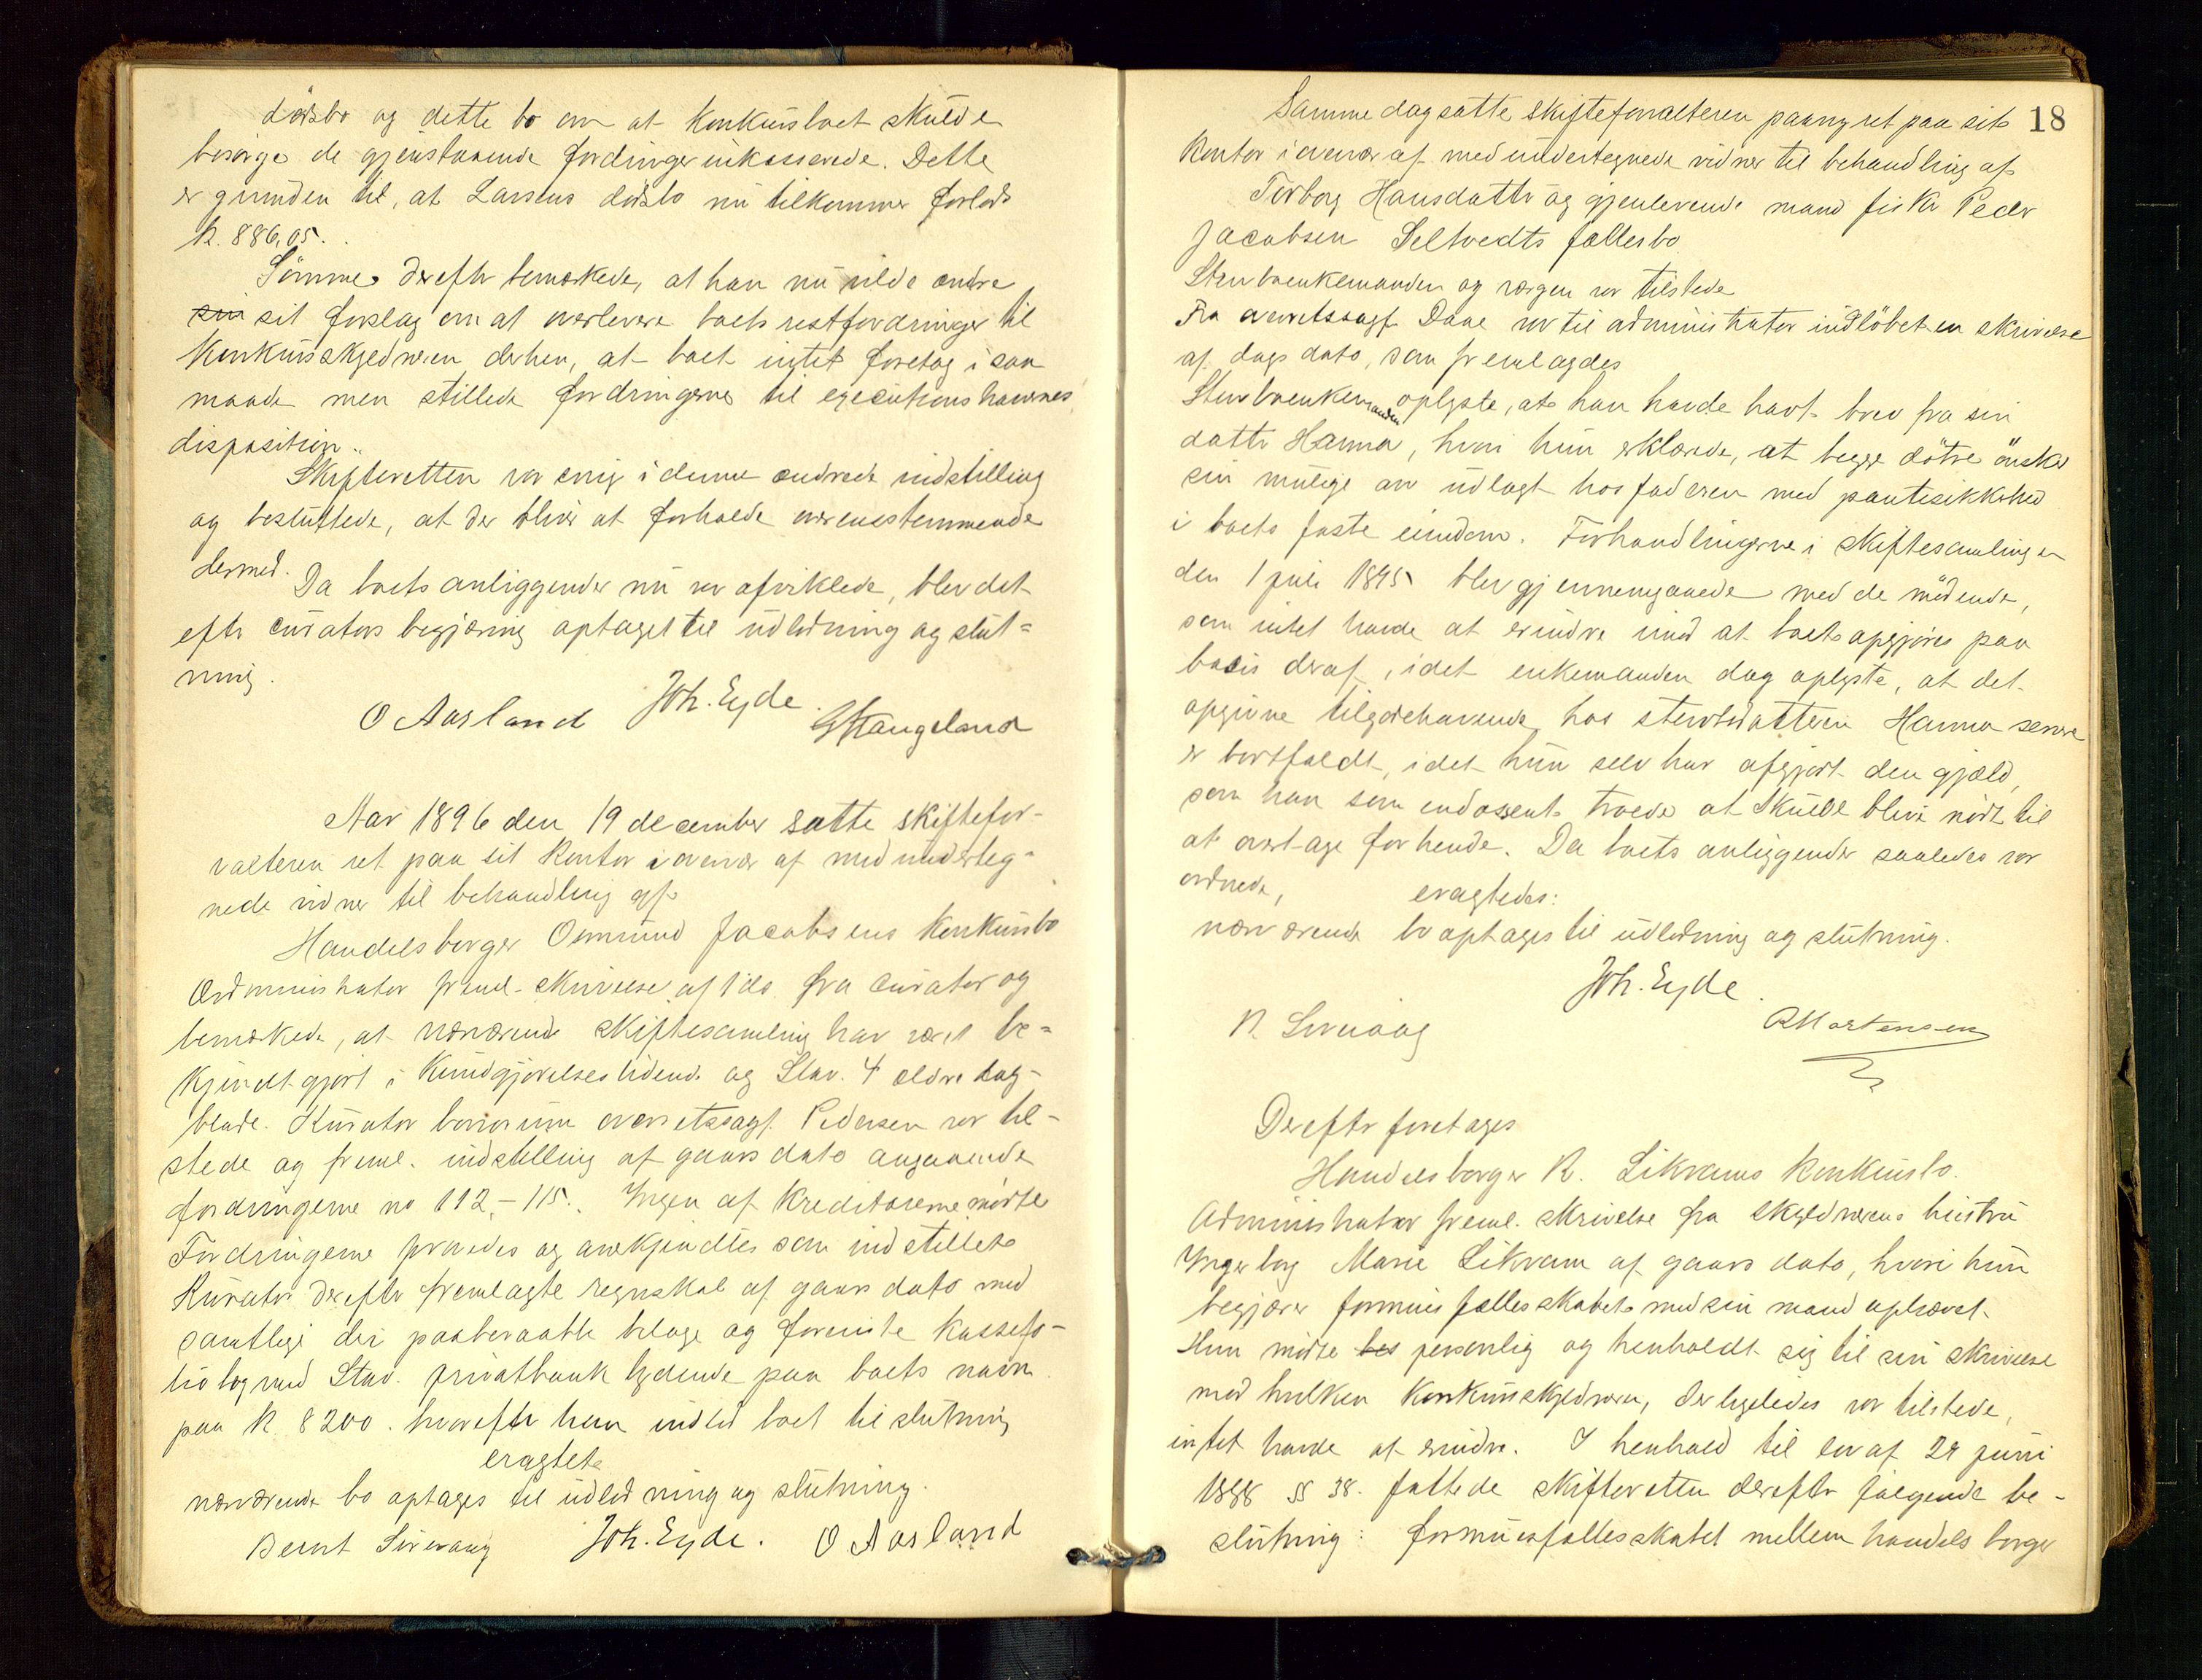 dødsbo og dette bo om at konkursboet skulde
besørge de gjenstaaende fordringer inkasserede. Dette
er grunden til, at Larsens dødsbo nu tilkommer forlods
K. 886,05.
Sömme derefter bemærkede, at han nu vilde ændre
sin sit forslag om at overlevere boets restfordringer til
konkursskyldneren derhen, at boet intet foretog i saa
maade men stillede fordringerne til executionshavernes
disposition.
Skifteretten var enig i denne ændrede indstilling
og besluttede, at der bliver at forholde overensstemmende
dermed.
Da boets anliggender nu var afviklede, blev det
efter curators begjæring optaget til udlodning og slut-
ning.
O Aasland Joh. Eyde. G Haugeland
Aar 1896 den 19 december satte skiftefor-
valteren ret paa sit kontor i overvær af medunderteg-
nede vidner til behandling af
Handelsborger Osmund Jacobsens konkursbo
Administrator freml. skrivelse af 1 ds. fra curator og
bemærkede, at nærværende skiftesamling har været be-
kjendtgjort i Kundgjörelsestidende og Stav. 4 ældre dag-
blade. Kurator bonorum overretssagf. Pedersen var til-
stede og freml. indstilling af gaars dato angaaende
fordringerne no 112-115. Ingen af kreditorerne mødte
Fordringerne prøvedes og anerkjendtes som indstillet
Kurator derefter fremlagte regnskab af gaars dato med
samtlige deri paaberaabte bilage og foreviste kassefo-
lio bog med Stav. privatbank lydende paa boets navn
paa K 8200. hvorefter han indlod boet til slutning
eragtet
nærværende bo optages til udlodning og slutning.
Bernt Sivevaag Joh. Eyde. O Aasland
18
Samme dag satte skifteforvalteren paany ret paa sit
kontor i overvær af medundertegnede vidner til behandling af
Torborg Hansdatter og gjenlevende mand fisker Peder
Jacobsen Seltvedts fællesbo
Stervboenkemanden og værgen var tilstede
Fra overretssagf. Daae var til administrator indlöbet en skrivelse
af dags dato, som fremlagdes
Stervboenkemanden oplyste, at han havde havt brev fra sin
datter Hanna, hvori hun erklærede, at begge dötre önsker
sin mulige arv udlagt hos faderen med pantesikkerhed
i boets faste eiendom. Forhandlingerne i skiftesamlingen
den 1 juli 1895 blev gjennemgaaede med de mødende,
som intet havde at erindre imod at boet opgjöres paa
basis deraf, idet enkemanden dog oplyste, at det
opgivne tilgodehavende hos stervbodatteren Hanna senere
er bortfaldt, idet hun selv har afgjort den gjæld,
som han som endossent troede at skulle blive nødt til
at overtage for hende. Da boets anliggender saaledes var
ordnede, eragtedes:
nærværende bo optages til udlodning og slutning.
Joh. Eyde.
B. Sivevaag Mortensen
Derefter foretages
Handelsborger R. Sikvams konkursbo.
Administrator freml. skrivelse fra skyldnerens hustru
Ingerborg Marie Sikvam af gaars dato, hvori hun
begjærer formuesfællesskabet med sin mand ophævet.
Hun mødte personlig og henholdt sig til sin skrivelse
mod hvilken konkursskyldneren, der ligeledes var tilstede,
intet havde at erindre. I henhold til lov af 29 juni
1888 § 38. fattede skifteretten derefter følgende be-
slutning: formuesfællesskabet mellem handelsborger